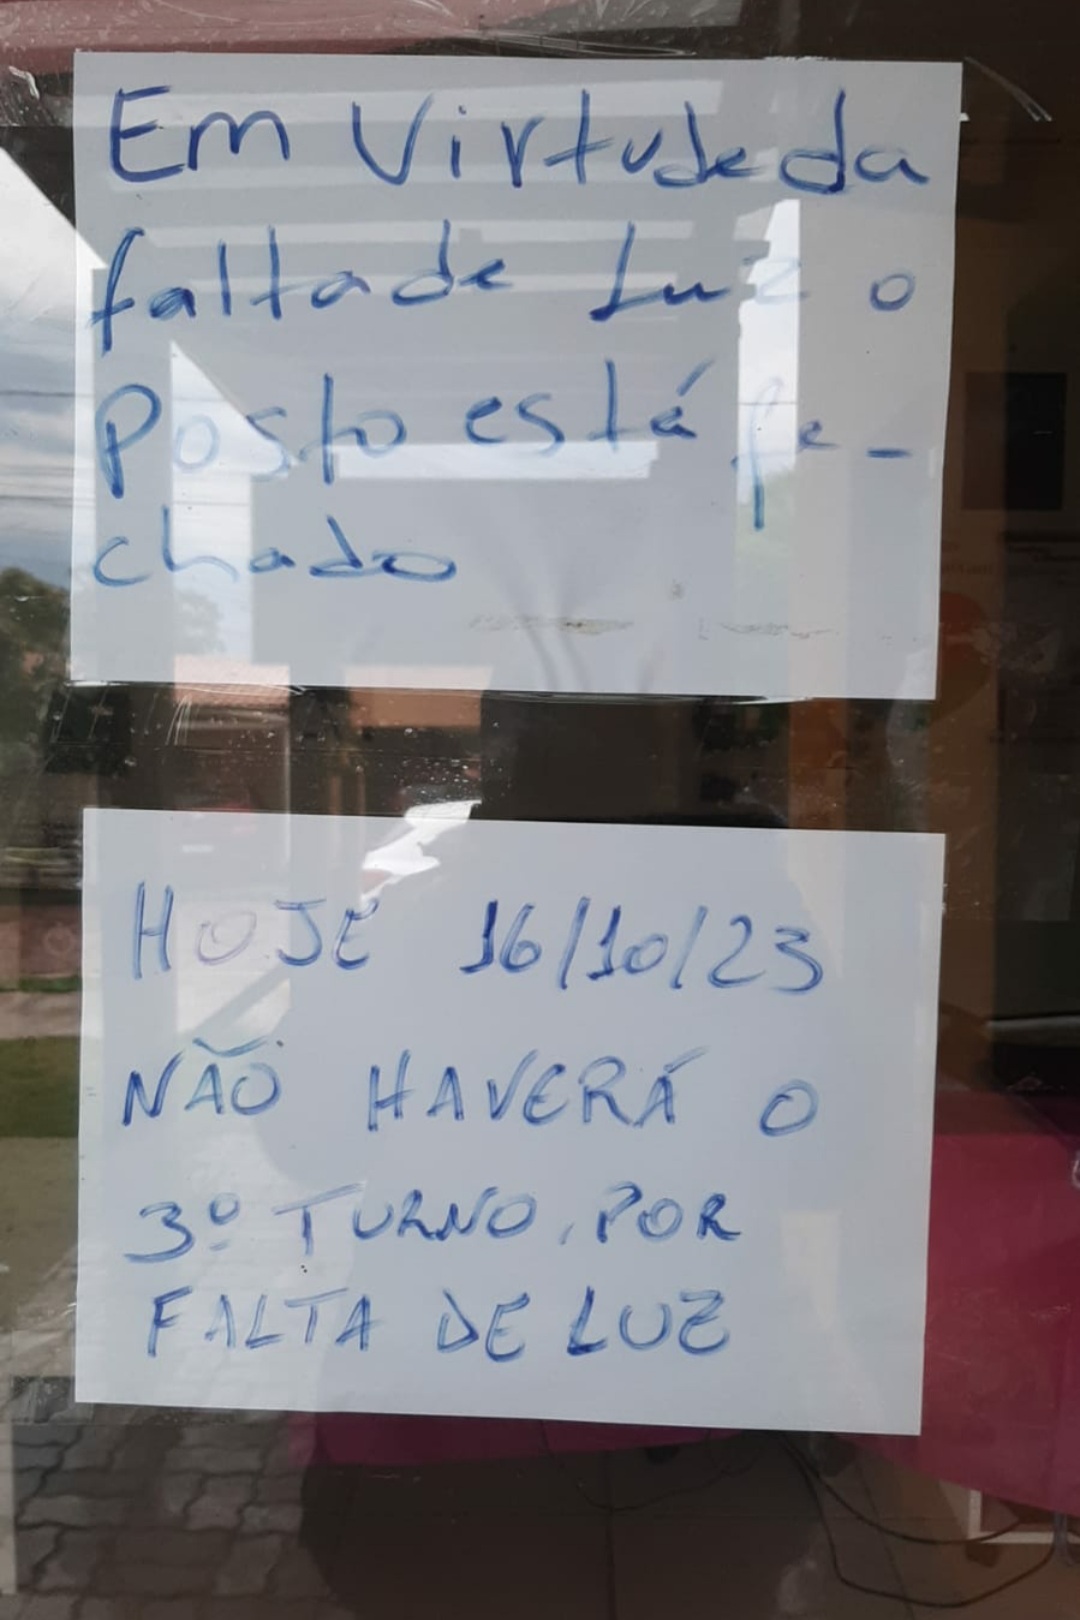 Em Virtude da
falta de Luz o
Posto está fe-
chado
HOJE 16/10/23
NÃO HAVERÁ O
3º TURNO, POR
FALTA DE LUZ